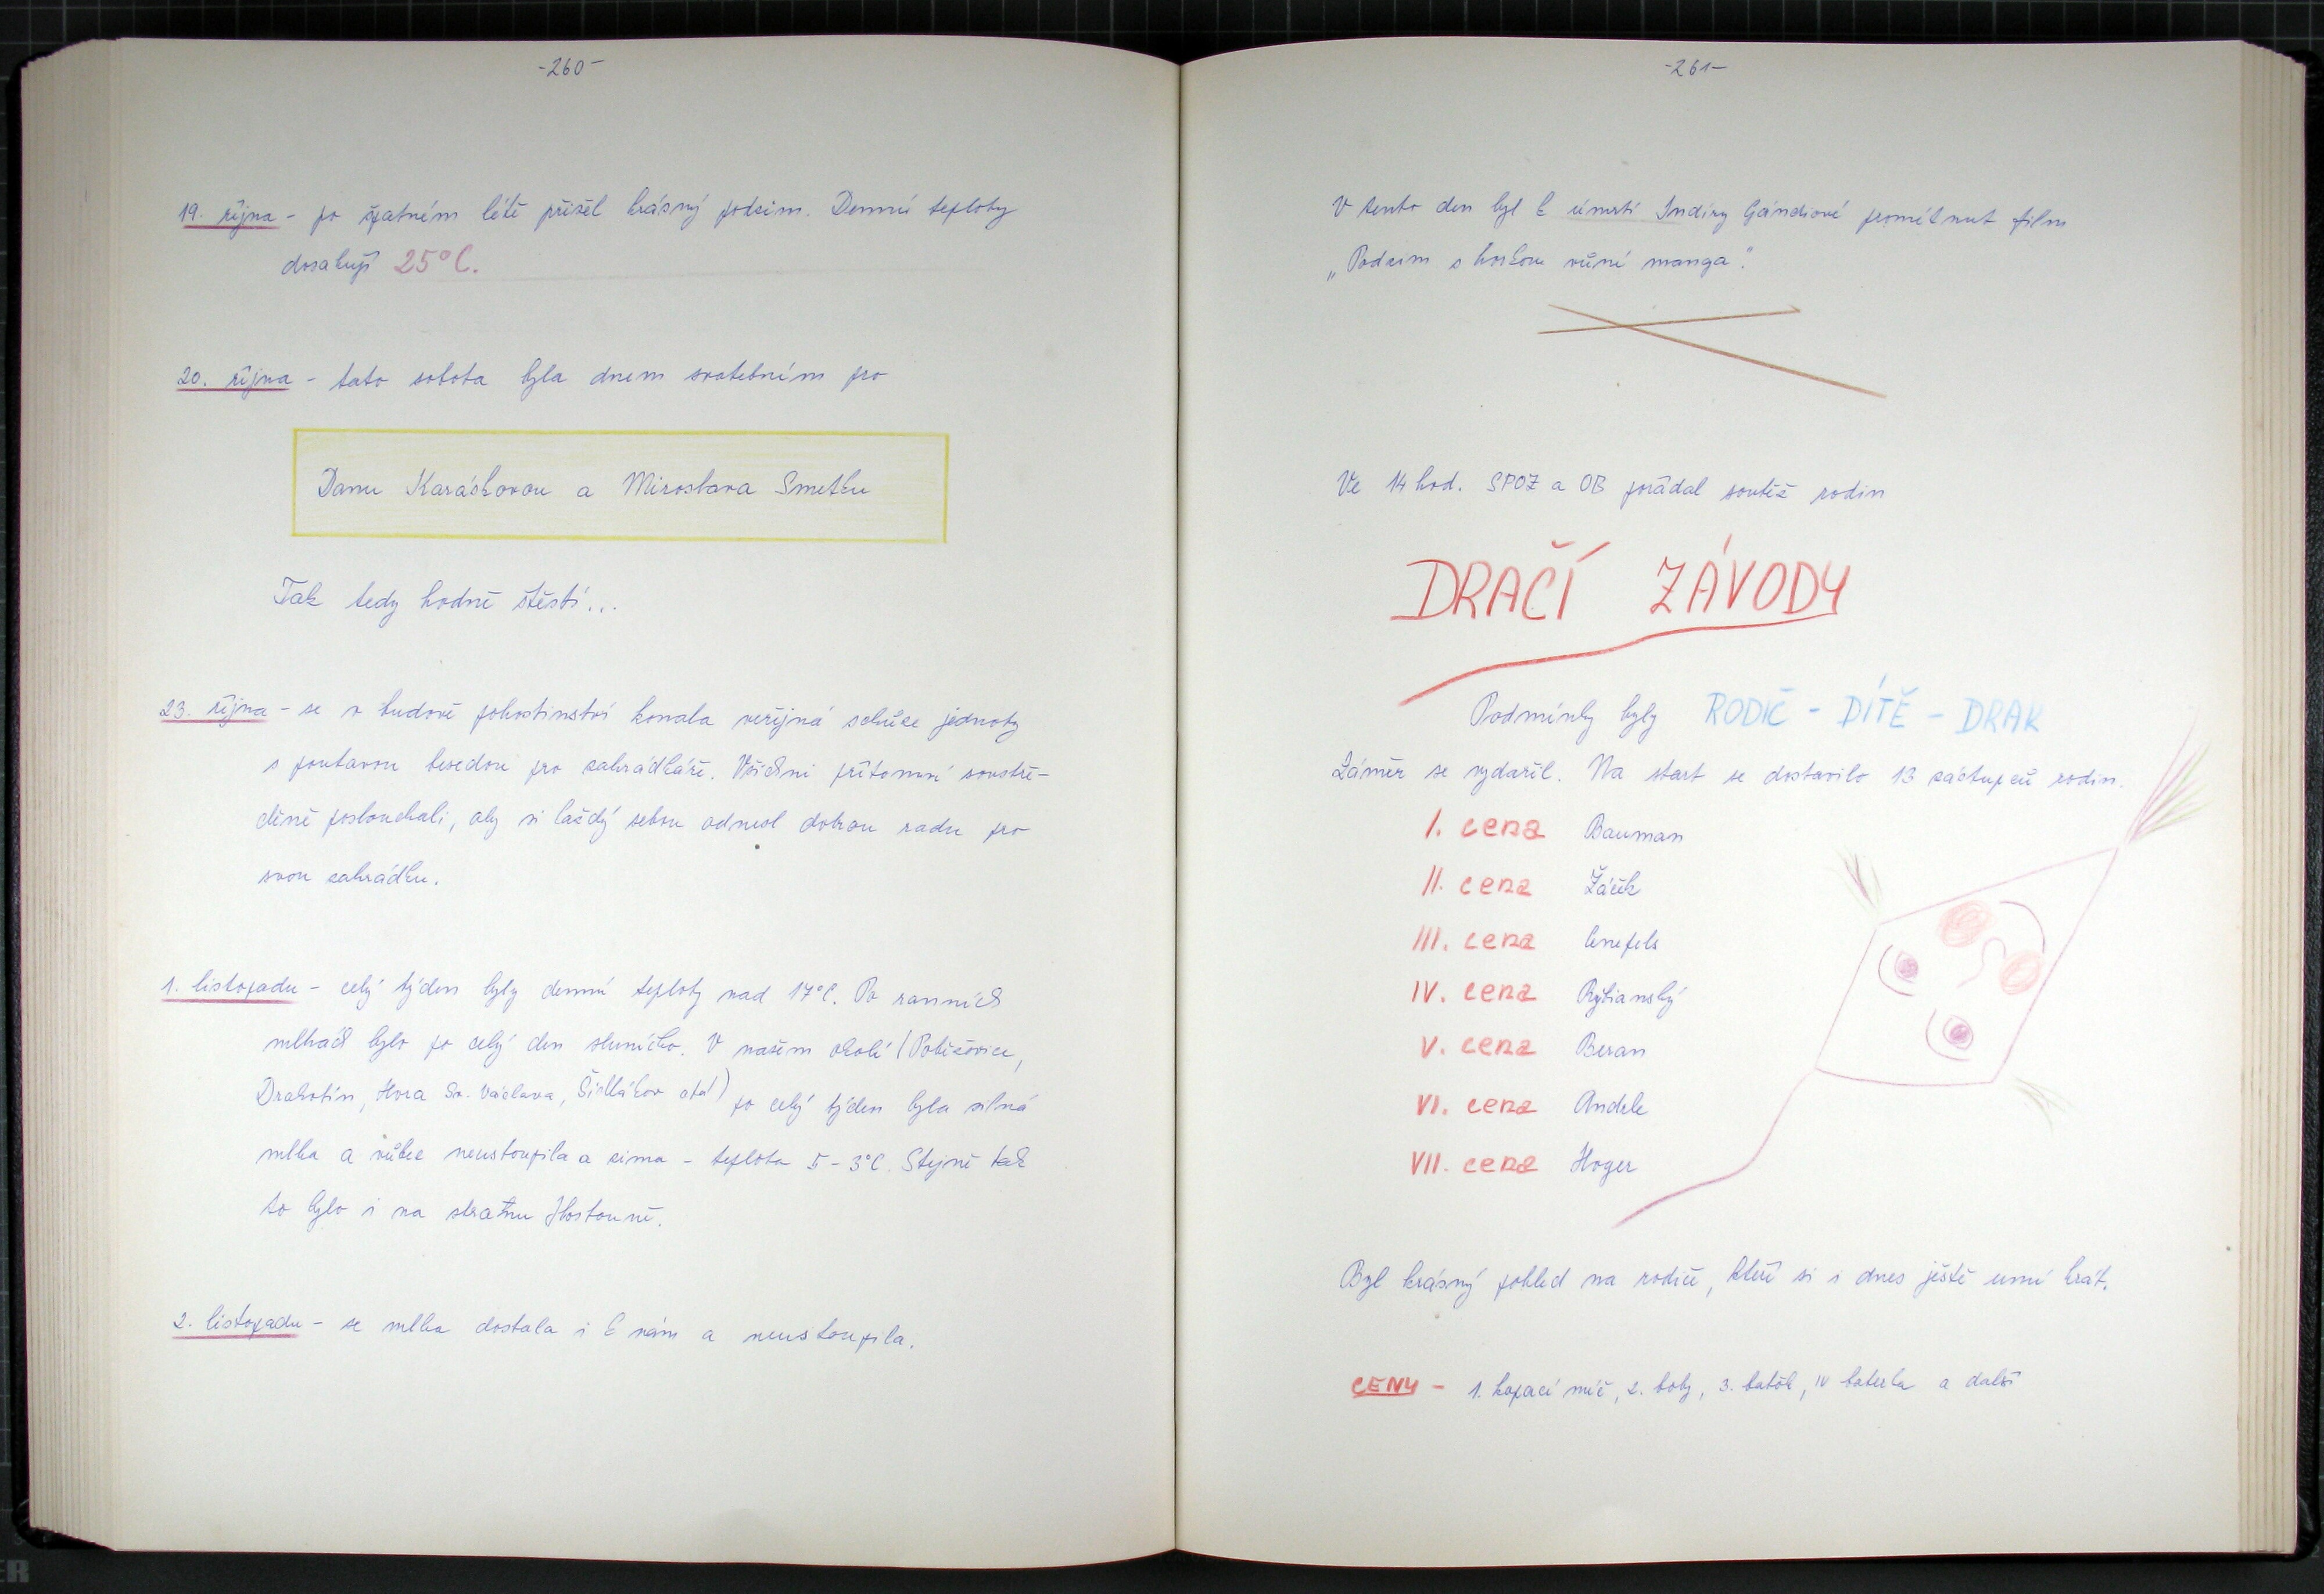 -260-
19. října - po špatném létě přišel krásný podzim. Denní teploty
dosahují 25°C.
20. října - tato sobota byla dnem svatebním pro
Danu Karáskovou a Miroslava Smetku
Tak tedy hodně štěstí...
23. října - se v budově pohostinství konala veřejná schůze jednoty
s poutavou besedou pro zahrádkáře. Všichni přítomní soustře-
děně poslouchali, aby si každý sebou odnesl dobrou radu pro
svou zahrádku.
1. listopadu - celý týden byly denní teploty nad 17°C. Po ranních
mlhách bylo po celý den sluníčko. V našem okolí (Poběžovice,
Drahotín, Hora Sv. Václava, Šidlákov atd) po celý týden byla silná
mlha a vůbec neustoupila a zima - teplota 5-3°C. Stejně tak
to bylo i na stratnu Hostouně.
2. listopadu - se mlha dostala i k nám a neustoupila.
-261-
V tento den byl k úmrtí Indiry Gándiové promítnut film
„Podzim s horkou vůní manga".
Ve 14 hod. SPOZ a OB pořádal soutěž rodin
DRAČÍ ZÁVODY
Podmínky byly RODIČ - DÍTĚ - DRAK
Záměr se vydařil. Na start se dostavilo 13 zástupců rodin.
I. cena Bauman
II. cena Žáček
III. cena
IV. cena Rybianský
V. cena Beran
VI. cena Andrle
VII. cena Hoger
Byl krásný pohled na rodiče, kteří si i dnes ještě umí hrát.
CENY - 1. kopací míč, 2. boby, 3. batôh, IV baterka a další